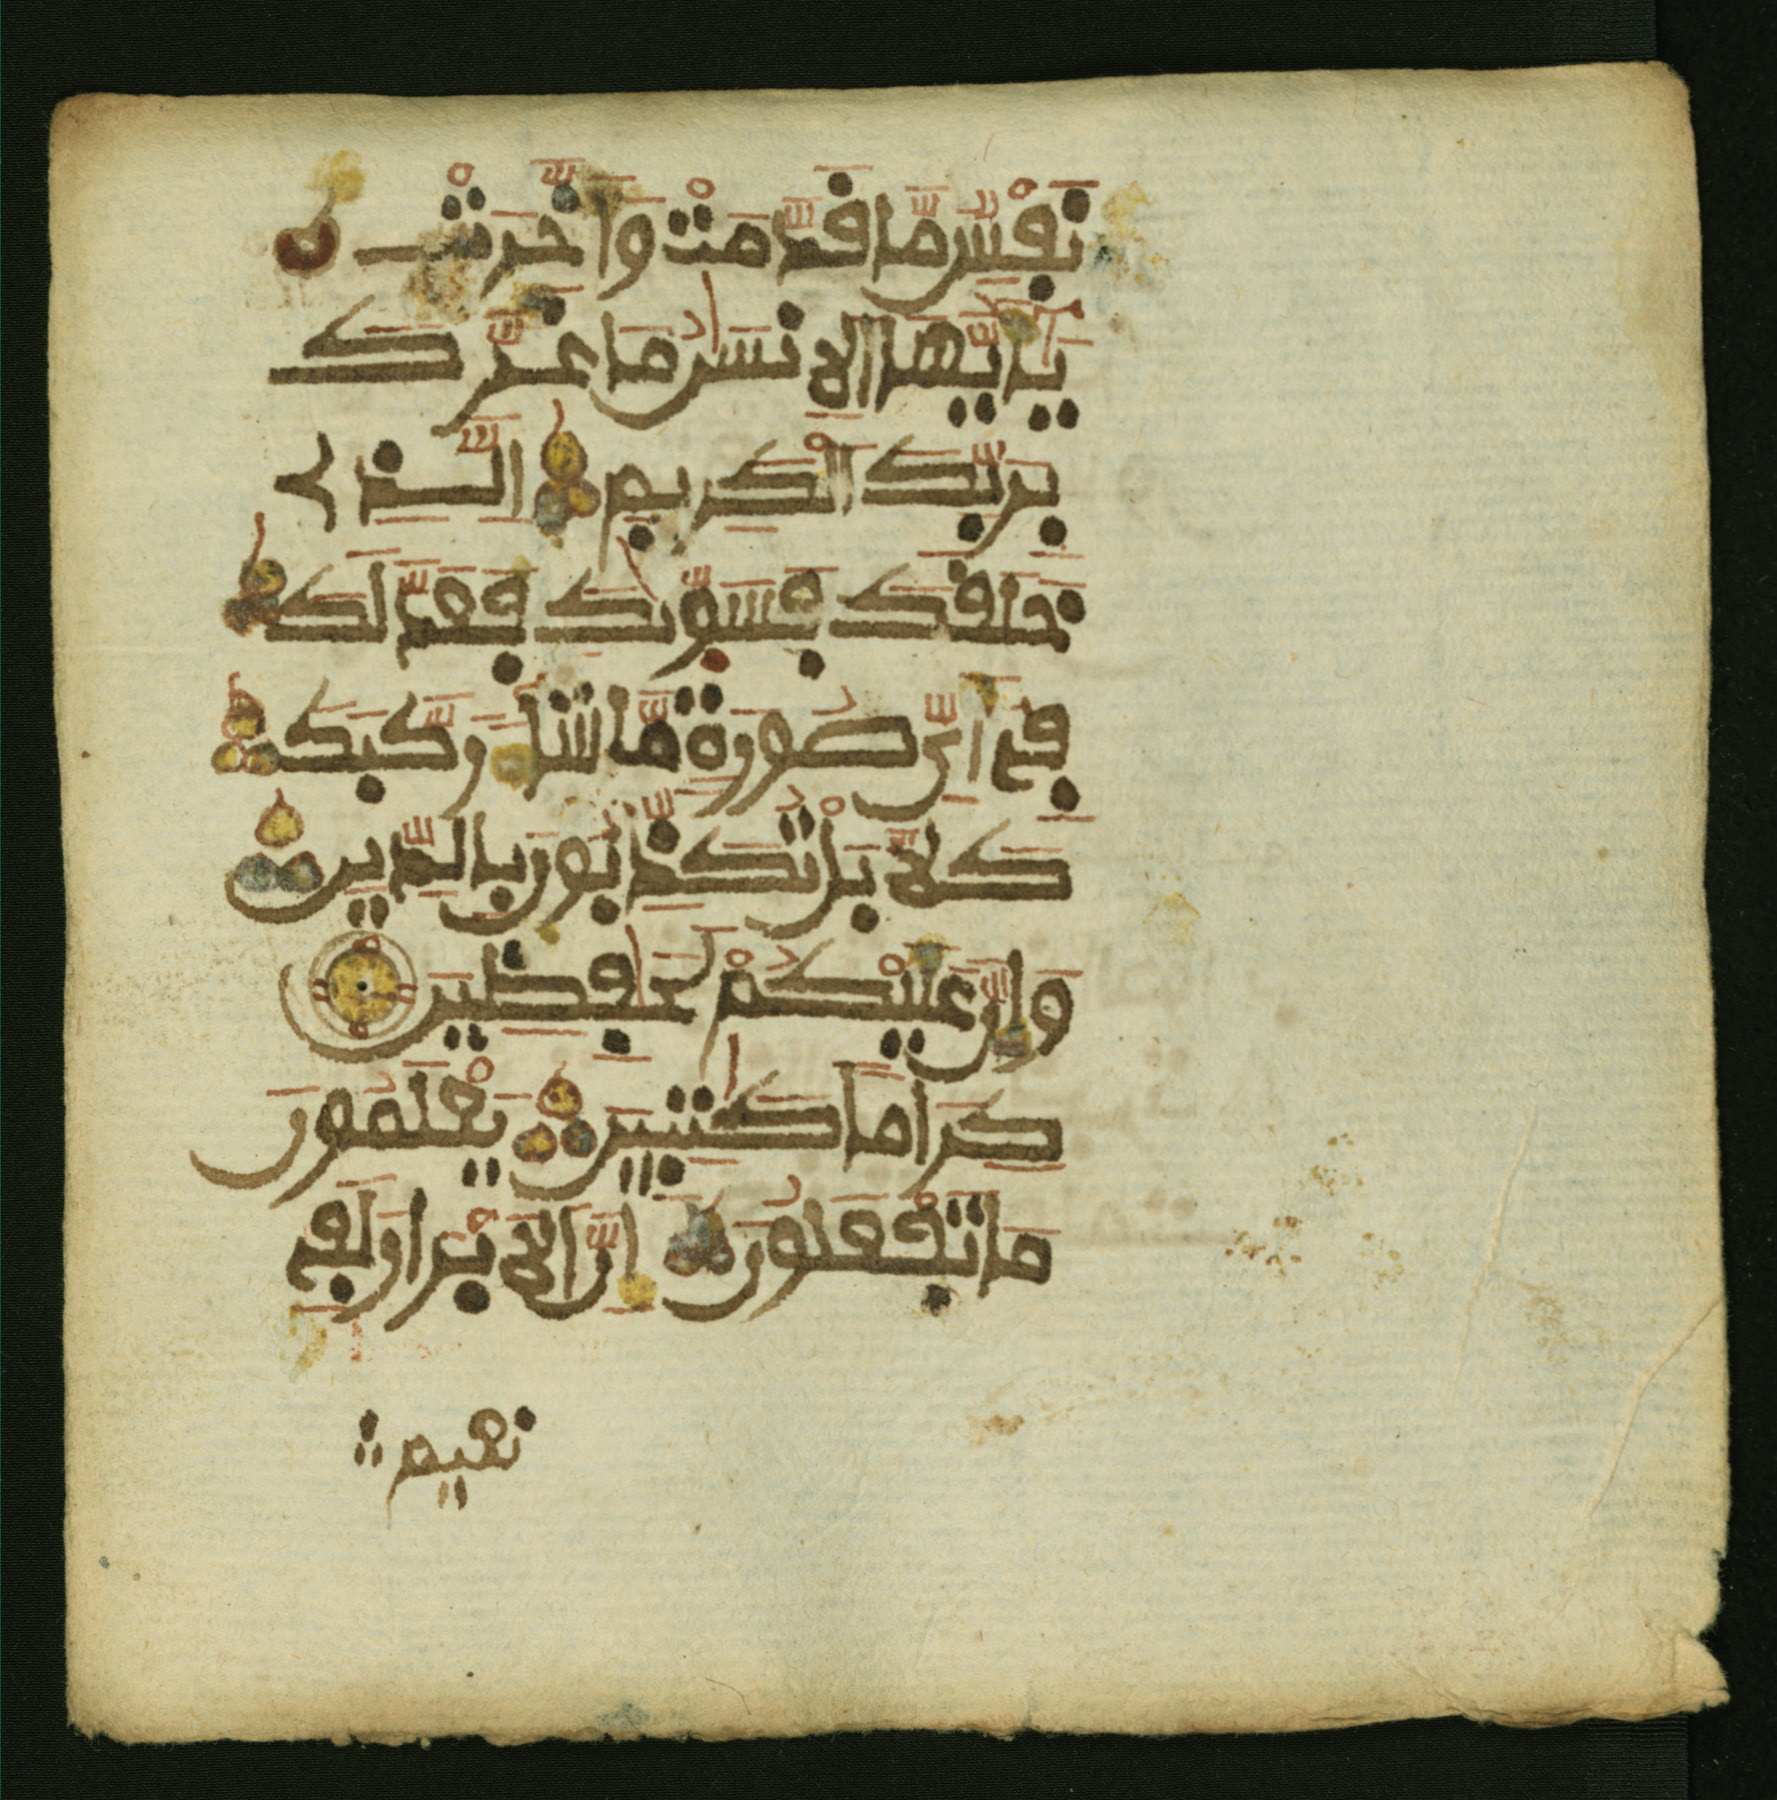 نفس ما قدمت واخرت
يايها الانسن ما غرك
بربك الكريم الذے
خلقك فسويك فعدلك
في اي صورة ما شا ركبك
كلا بل تكذبون بالدين
وان عليكم لحفظين
كراما كتبين يعلمون
ما تفعلون ان الابرار لفي
نعيم